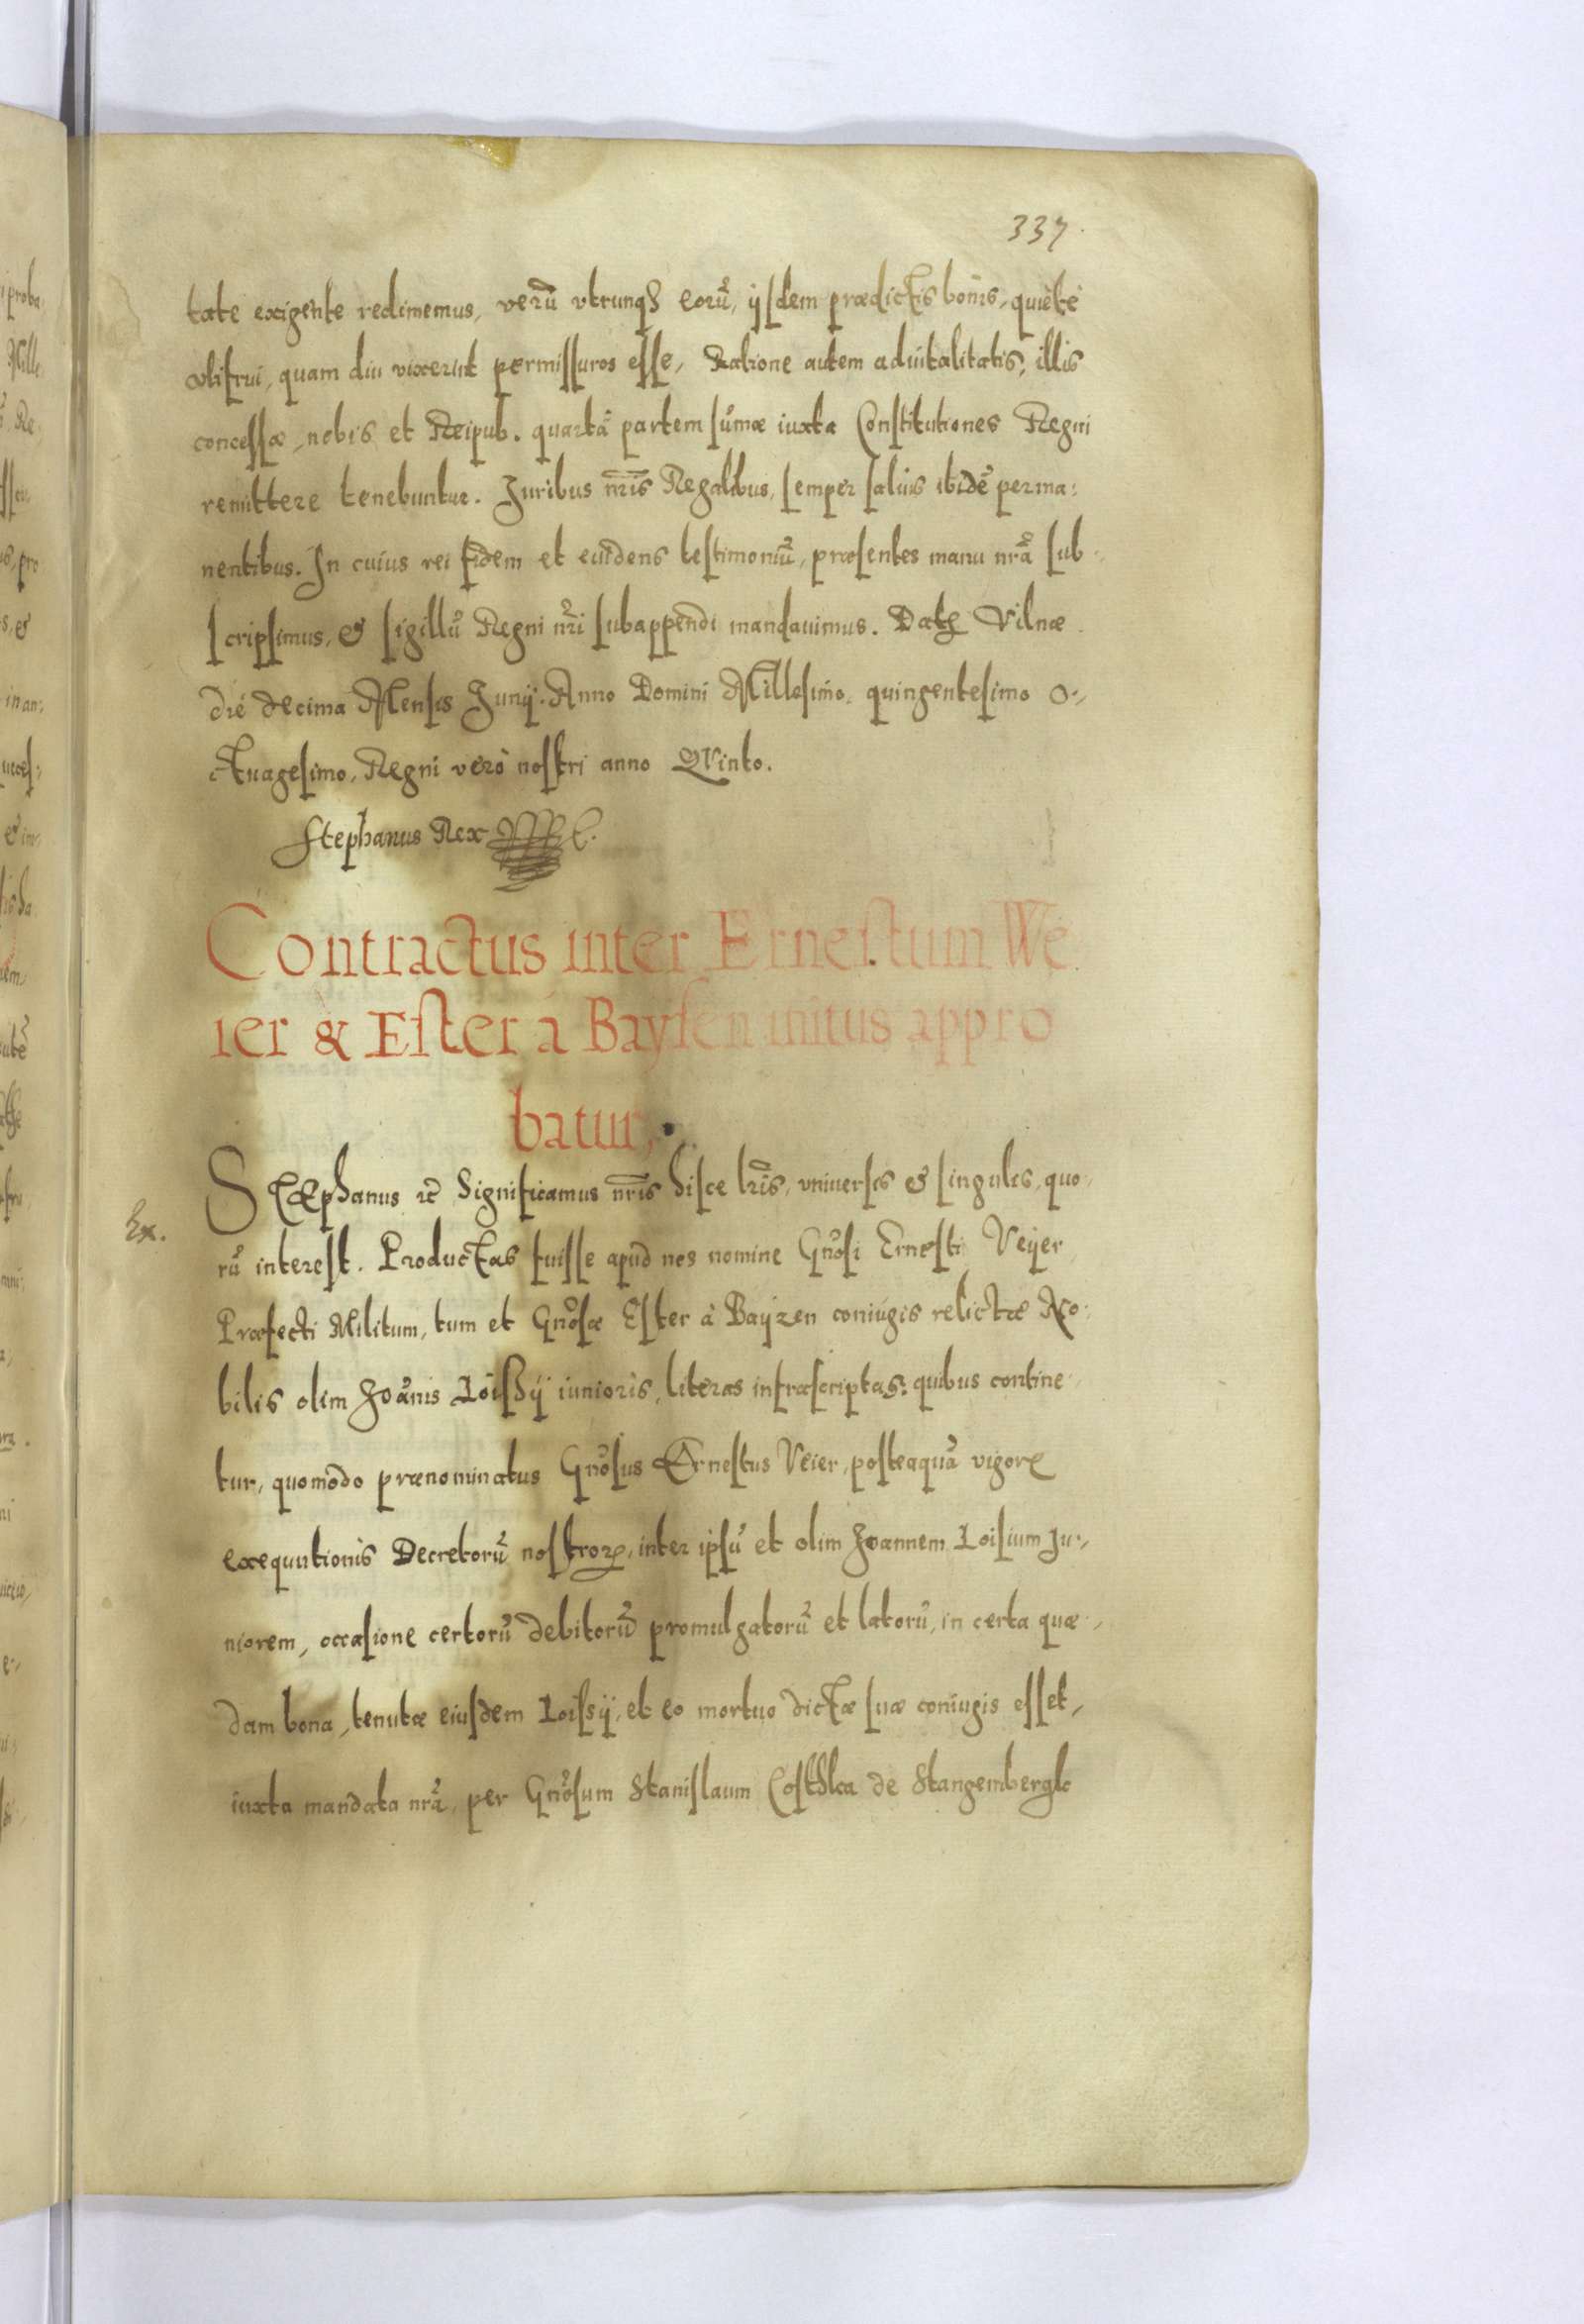 337.
tate exigente redimemus, verũ vtrunqȝ eorũ, ijsdem prædictis bonis, quiete
vtifrui, quam diu vixerint permissuros esse, Ratione autem aduitalitatis, illis
concessæ, nobis et Reipub. quartã partem sũmæ iuxta Constitutiones Regni
remittere tenebuntur. Juribus nr̃is Regalibus, semper saluis ibidẽ perma:
nentibus. In cuius rei fidem et euidens testimoniũ, præsentes manu nrã sub-
scripsimus, & sigillũ Regni nr̃i subappendi mandauimus. Datꝭ Vilnæ
die decima Mensis Junij. Anno Domini Millesimo. quingentesimo o-
ctuagesimo, Regni vero nostri anno Qvinto.
Stephanus Rex
Contractus inter Ernestum We
ier & Ester a Baysen initus appro
batur,
STephanus rc̃ Significamus nr̃is hisce lr̃is, vniuersis & singulis, quo-
Ex.
rũ interest. Productas fuisse apud nos nomine Gnõsi Ernesti Veijer
Præfecti Militum, tum et Gnõsæ Ester à Baÿzen coniugis relictæ No:
bilis olim Joãnis Loisii iunioris, literas infrascriptas: quibus contine-
tur, quomodo prænominatus Gnõsus Ernestus Veier, posteaquã vigore
exequutionis Decretorũ nostroꝝ, inter ipsũ et olim Joannem Loisium Ju-
niorem, occasione certorũ debitorũ promulgatorũ et latorũ, in certa quæ-
dam bona, tenutæ eiusdem Loisij, et eo mortuo dictæ suæ coniugis esset,
iuxta mandata nrã, per Gnõsum Stanislaum Costhka de Stangembergk